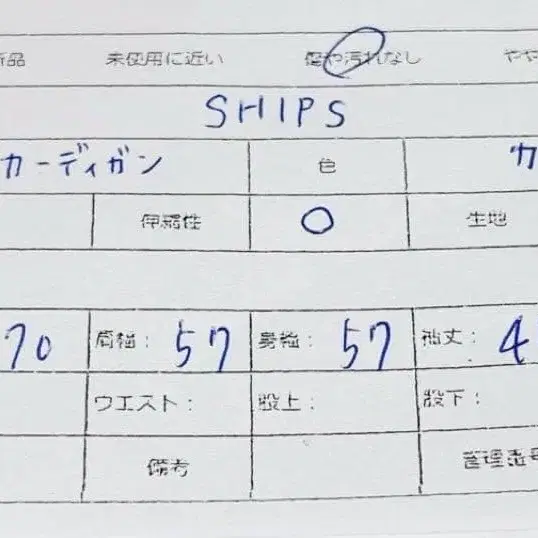 新品 未使用に近い 傷や汚れなし やや
SHIPS
カーディガン 色 カ
伸縮性 ○ 生地
70 肩幅: 57 身幅: 57 袖丈: 4
ウエスト: 股上: 股下:
備考 管理番号